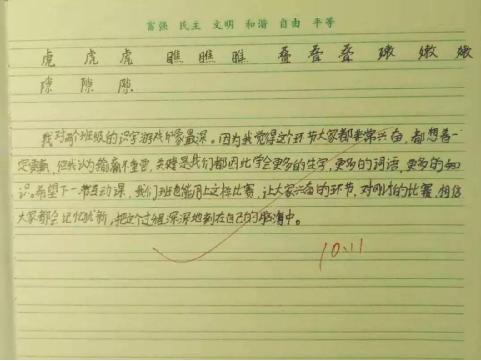 富强 民主 文明 和谐 自由 平等
虎 虎 虎 瞧 瞧 瞧 叠 叠 叠 嫩 嫩 嫩
隙 隙 隙
我对两个班级的识字游戏印象最深。因为我觉得这个环节大家都非常兴奋,都想着一
定要赢,但我认为输赢不重要,关键是我们都因此学会更多的生字,更多的词语,更多的知
识。希望下一节互动课,我们班也能有上这样比赛,让大家兴奋的环节,对的比赛,相信
大家都会记忆犹新,把这个过程深深地刻在自己的脑海中。
10.11